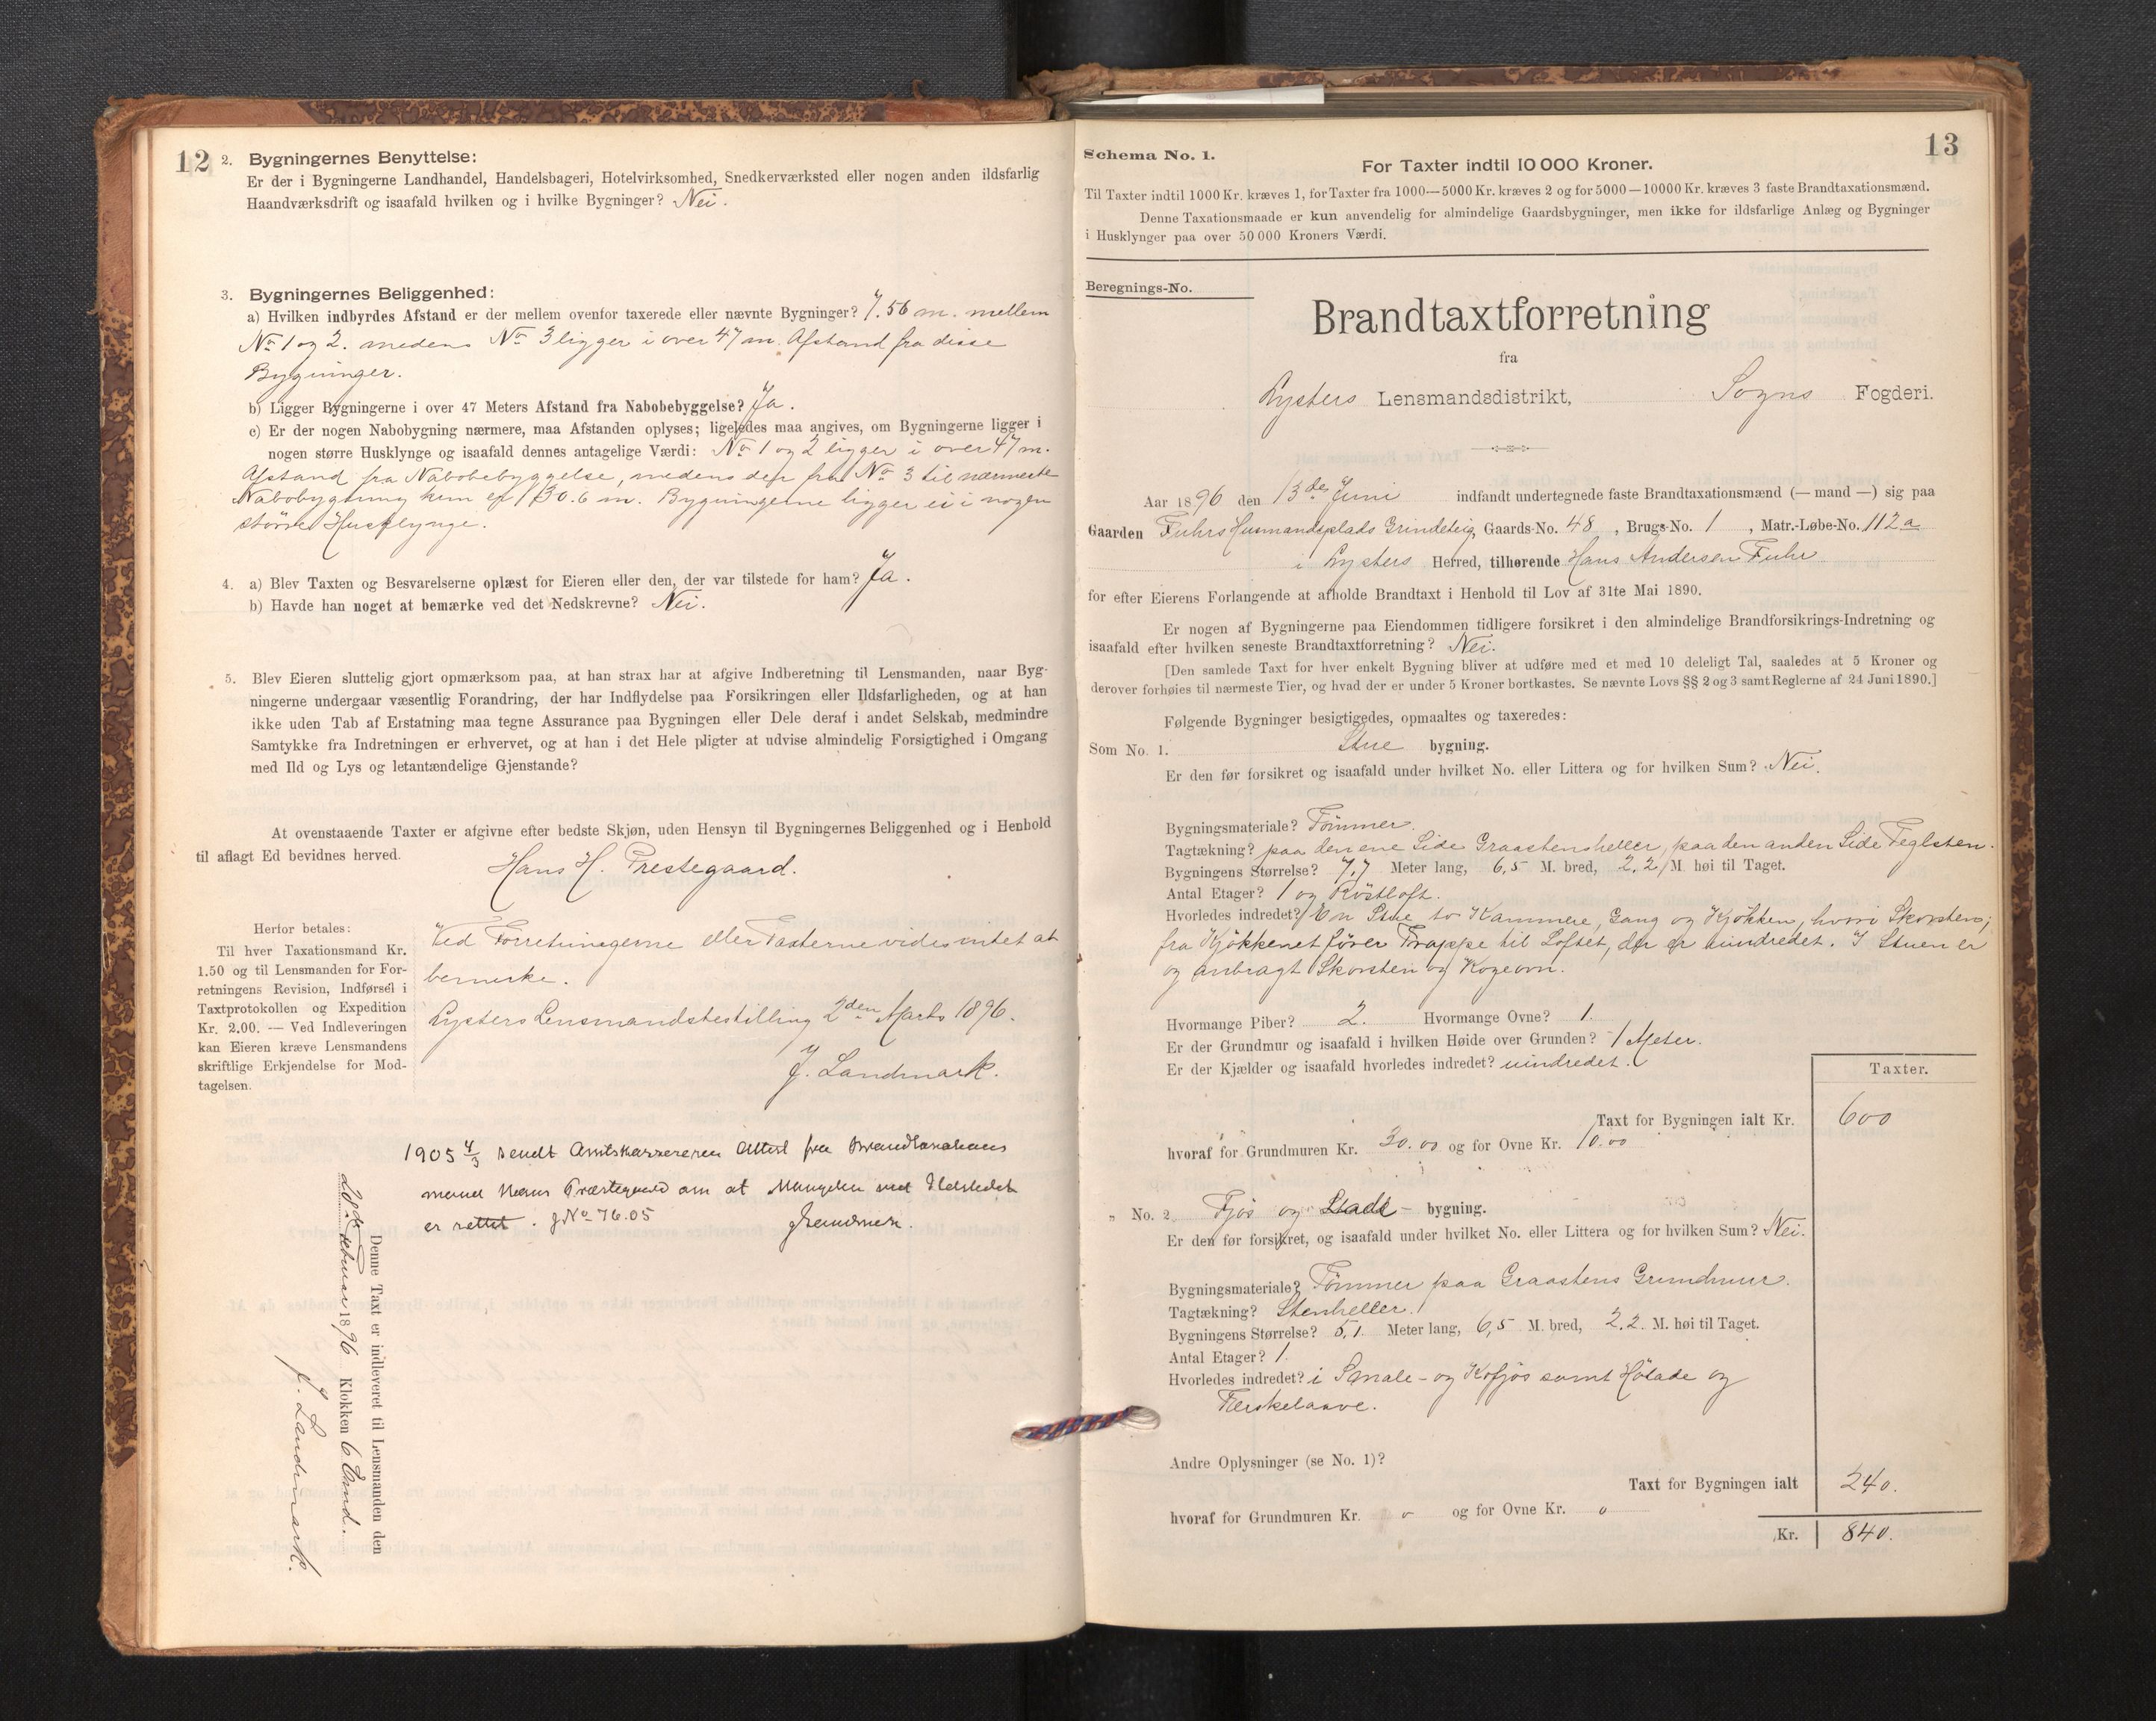 12
2. Bygningernes Benyttelse:
Er der i Bygningerne Landhandel, Handelsbageri, Hotelvirksomhed, Snedkerværksted eller nogen anden ildsfarlig
Haandværksdrift og isaafald hvilken og i hvilke Bygninger? Nei.
3. Bygningernes Beliggenhed:
a) Hvilken indbyrdes Afstand er der mellem ovenfor taxerede eller nævnte Bygninger? 7.56 m. mellem
No 1 og 2. medens No 3 ligger i over 47 m. Afstand fra disse
Bygninger.
b) Ligger Bygningerne i over 47 Meters Afstand fra Nabobebyggelse? Ja.
c) Er der nogen Nabobygning nærmere, maa Afstanden oplyses; ligeledes maa angives, om Bygningerne ligger i
nogen større Husklynge og isaafald dennes antagelige Værdi: No 1 og 2 ligger i over 47 m.
Afstand fra Nabobebyggelse, medens der fra No 3 til nærmeste
Nabobygning kun er 30.6 m. Bygningerne ligger ei i nogen
større Husklynge.
4. a) Blev Taxten og Besvarelserne oplæst for Eieren eller den, der var tilstede for ham? Ja.
b) Havde han noget at bemærke ved det Nedskrevne? Nei.
5. Blev Eieren sluttelig gjort opmærksom paa, at han strax har at afgive Indberetning til Lensmanden, naar Byg-
ningerne undergaar væsentlig Forandring, der har Indflydelse paa Forsikringen eller Ildsfarligheden, og at han
ikke uden Tab af Erstatning maa tegne Assurance paa Bygningen eller Dele deraf i andet Selskab, medmindre
Samtykke fra Indretningen er erhvervet, og at han i det Hele pligter at udvise almindelig Forsigtighed i Omgang
med Ild og Lys og letantændelige Gjenstande?
At ovenstaaende Taxter er afgivne efter bedste Skjøn, uden Hensyn til Bygningernes Beliggenhed og i Henhold
til aflagt Ed bevidnes herved.
Hans H. Prestegaard.
Herfor betales:
Til hver Taxationsmand Kr.
1.50 og til Lensmanden for For-
retningens Revision, Indførsel i
Taxtprotokollen og Expedition
Kr. 2.00. — Ved Indleveringen
kan Eieren kræve Lensmandens
skriftlige Erkjendelse for Mod-
tagelsen.
Ved Forretningerne eller Taxterne vides intet at
bemerke.
Lysters Lensmandsbestilling 2den Marts 1896.
J. Landmark.
1905 4/3 sendt Amtskassereren Attest fra Brandtaxations
mand Hans Præstegaard om at Mangelen ved Ildstedet
er rettet. JNo 76.05
Denne Taxt er indleveret til Lensmanden den
Februar 1896 Klokken 6 Emd.
J. Landmark.
13
Schema No. 1.
For Taxter indtil 10 000 Kroner.
Til Taxter indtil 1000 Kr. kræves 1, for Taxter fra 1000—5000 Kr. kræves 2 og for 5000—10000 Kr. kræves 3 faste Brandtaxationsmænd.
Denne Taxationsmaade er kun anvendelig for almindelige Gaardsbygninger, men ikke for ildsfarlige Anlæg og Bygninger
i Husklynger paa over 50 000 Kroners Værdi.
Beregnings-No.
Brandtaxtforretning
fra
Lysters Lensmandsdistrikt, Sogns Fogderi.
Aar 1896 den 13de Juni indfandt undertegnede faste Brandtaxationsmænd (— mand —) sig paa
Gaarden Fuhrs Husmandsplads Grindeteig, Gaards-No. 48, Brugs-No. 1, Matr.-Løbe-No. 112a
i Lysters Herred, tilhørende Hans Andersen Fuhr
for efter Eierens Forlangende at afholde Brandtaxt i Henhold til Lov af 31te Mai 1890.
Er nogen af Bygningerne paa Eiendommen tidligere forsikret i den almindelige Brandforsikrings-Indretning og
isaafald efter hvilken seneste Brandtaxtforretning? Nei.
[Den samlede Taxt for hver enkelt Bygning bliver at udføre med et med 10 deleligt Tal, saaledes at 5 Kroner og
derover forhøies til nærmeste Tier, og hvad der er under 5 Kroner bortkastes. Se nævnte Lovs §§ 2 og 3 samt Reglerne af 24 Juni 1890.]
Følgende Bygninger besigtigedes, opmaaltes og taxeredes:
Som No. 1. Stue bygning.
Er den før forsikret og isaafald under hvilket No. eller Littera og for hvilken Sum? Nei.
Bygningsmateriale? Tömmer.
Tagtækning? paa den ene Side Graastensheller, paa den anden Side Teglsten.
Bygningens Størrelse? 7,7 Meter lang, 6,5 M. bred, 2,2 M. høi til Taget.
Antal Etager? 1 og Röstloft.
Hvorledes indredet? En Stue to Kammere, Gang og Kjökken, hvori Skorsten;
fra Kjökkenet förer Trappe til Loftet, der er uindredet. I Stuen er
og anbragt Skorsten og Kogeovn.
Hvormange Piber? 2. Hvormange Ovne? 1.
Er der Grundmur og isaafald i hvilken Høide over Grunden? 1 Meter.
Er der Kjælder og isaafald hvorledes indredet? uindredet.
Taxter.
Taxt for Bygningen ialt Kr. 600
hvoraf for Grundmuren Kr. 30.00 og for Ovne Kr. 10.00
" No. 2 Fjös og Lade- bygning.
Er den før forsikret, og isaafald under hvilket No. eller Littera og for hvilken Sum? Nei.
Bygningsmateriale? Tömmer paa Graastens Grundmur.
Tagtækning? Stenheller.
Bygningens Størrelse? 5,1. Meter lang, 6,5 M. bred, 2.2. M. høi til Taget.
Antal Etager? 1.
Hvorledes indredet? i Smale- og Kofjös samt Hölade og
Tærskelaave.
Andre Oplysninger (se No. 1)?
Taxt for Bygningen ialt 240.
hvoraf for Grundmuren Kr. 0 og for Ovne Kr. 0
Kr. 840.